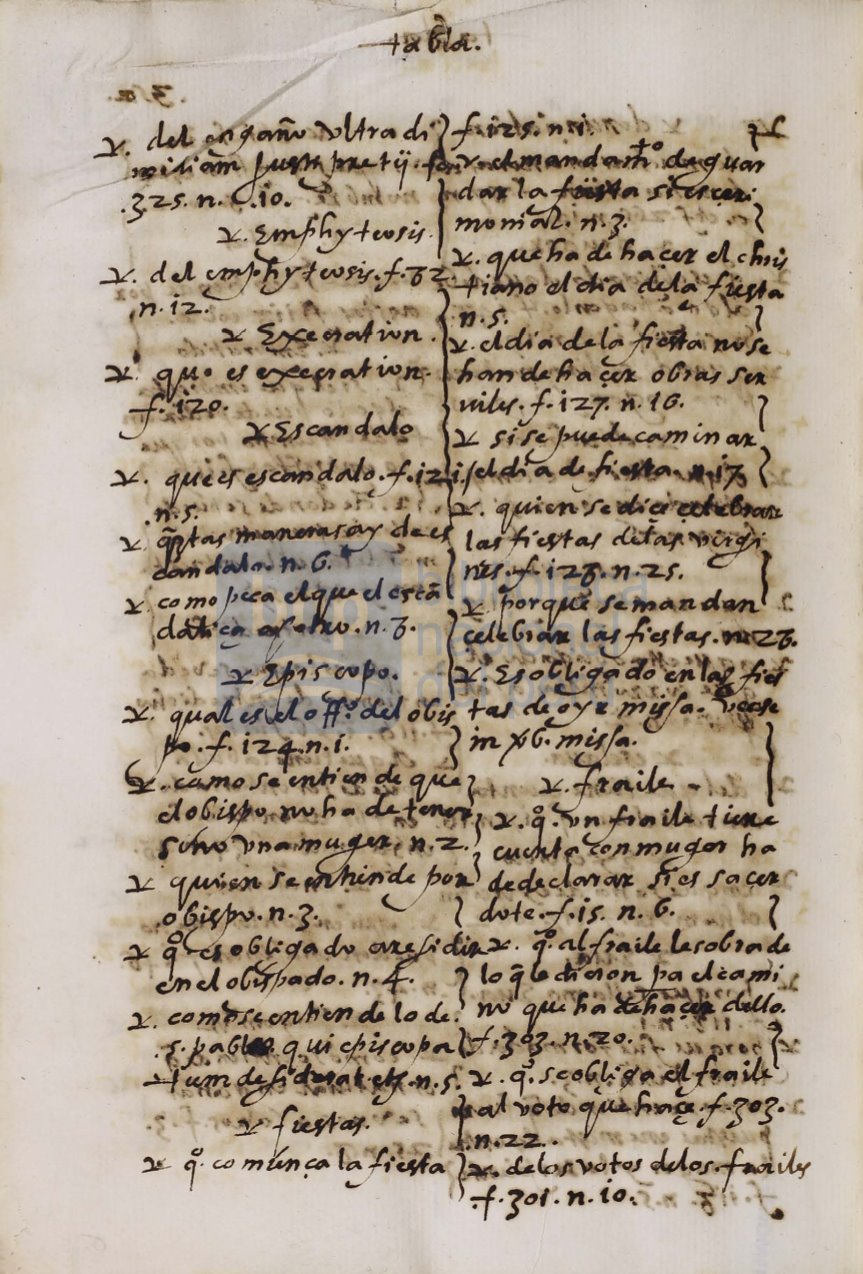 tabla.
℣. del engaño vltra di
midiam justi pretij. fo.
325. n. 10.
℣. Emphyteosis.
℣. del emphyteosis. f. 32
n. 12.
℣ Execration.
℣ que es execration.
f. 120.
℣ Escandalo
℣. que es escandalo. f. 121
n. 5.
℣ q̃tas maneras ay de es
candalo. n. 6.
℣ como peca el que el escã
daliça a otro. n. 3.
℣ Episcopo.
℣. qual es el offº. del obis
po. f. 124. n. 1.
℣. como se entien de que
el obispo no ha de tener
sino vna muger. n. 2.
℣ quien se entiende por
obispo. n. 3.
℣ qº es obligado a residir
en el obispado. n. 4.
℣. como se entien de lo de
s. pablo qui episcopa
tum desiderat etc. n. 5.
℣ fiestas.
℣ qº. comiença la fiesta
f. 125. n. 1.
℣. el mandamº. de guar
dar la fiesta si es ceri
monial. n. 3.
℣. que ha de haçer el chris
tiano el dia de la fiesta
n. 5.
℣. el dia de la fiesta no se
han de haçer obras ser
viles. f. 127. n. 16.
℣ si se puede caminar
el dia de fiesta. n. 17
℣. quien se diçe celebrar
las fiestas de las virgi
nes. f. 128. n. 25.
℣. porque se mandan
celebrar las fiestas. n. 28.
℣. Es obligado en las fies
tas de oyr missa. vease
in vb. missa.
℣. fraile
℣. qº. vn fraile tiene
cuenta con muger ha
de declarar si es sacer
dote. f. 15. n. 6.
℣. qº. al fraile le sobra de
lo q̃ le dieron pa el cami
no que ha de haçer dello.
f. 303. n. 20.
℣. qº. se obliga el fraile
al voto que haçe. f. 303.
n. 22.
℣. de los votos de los frailes
f. 301. n. 10.